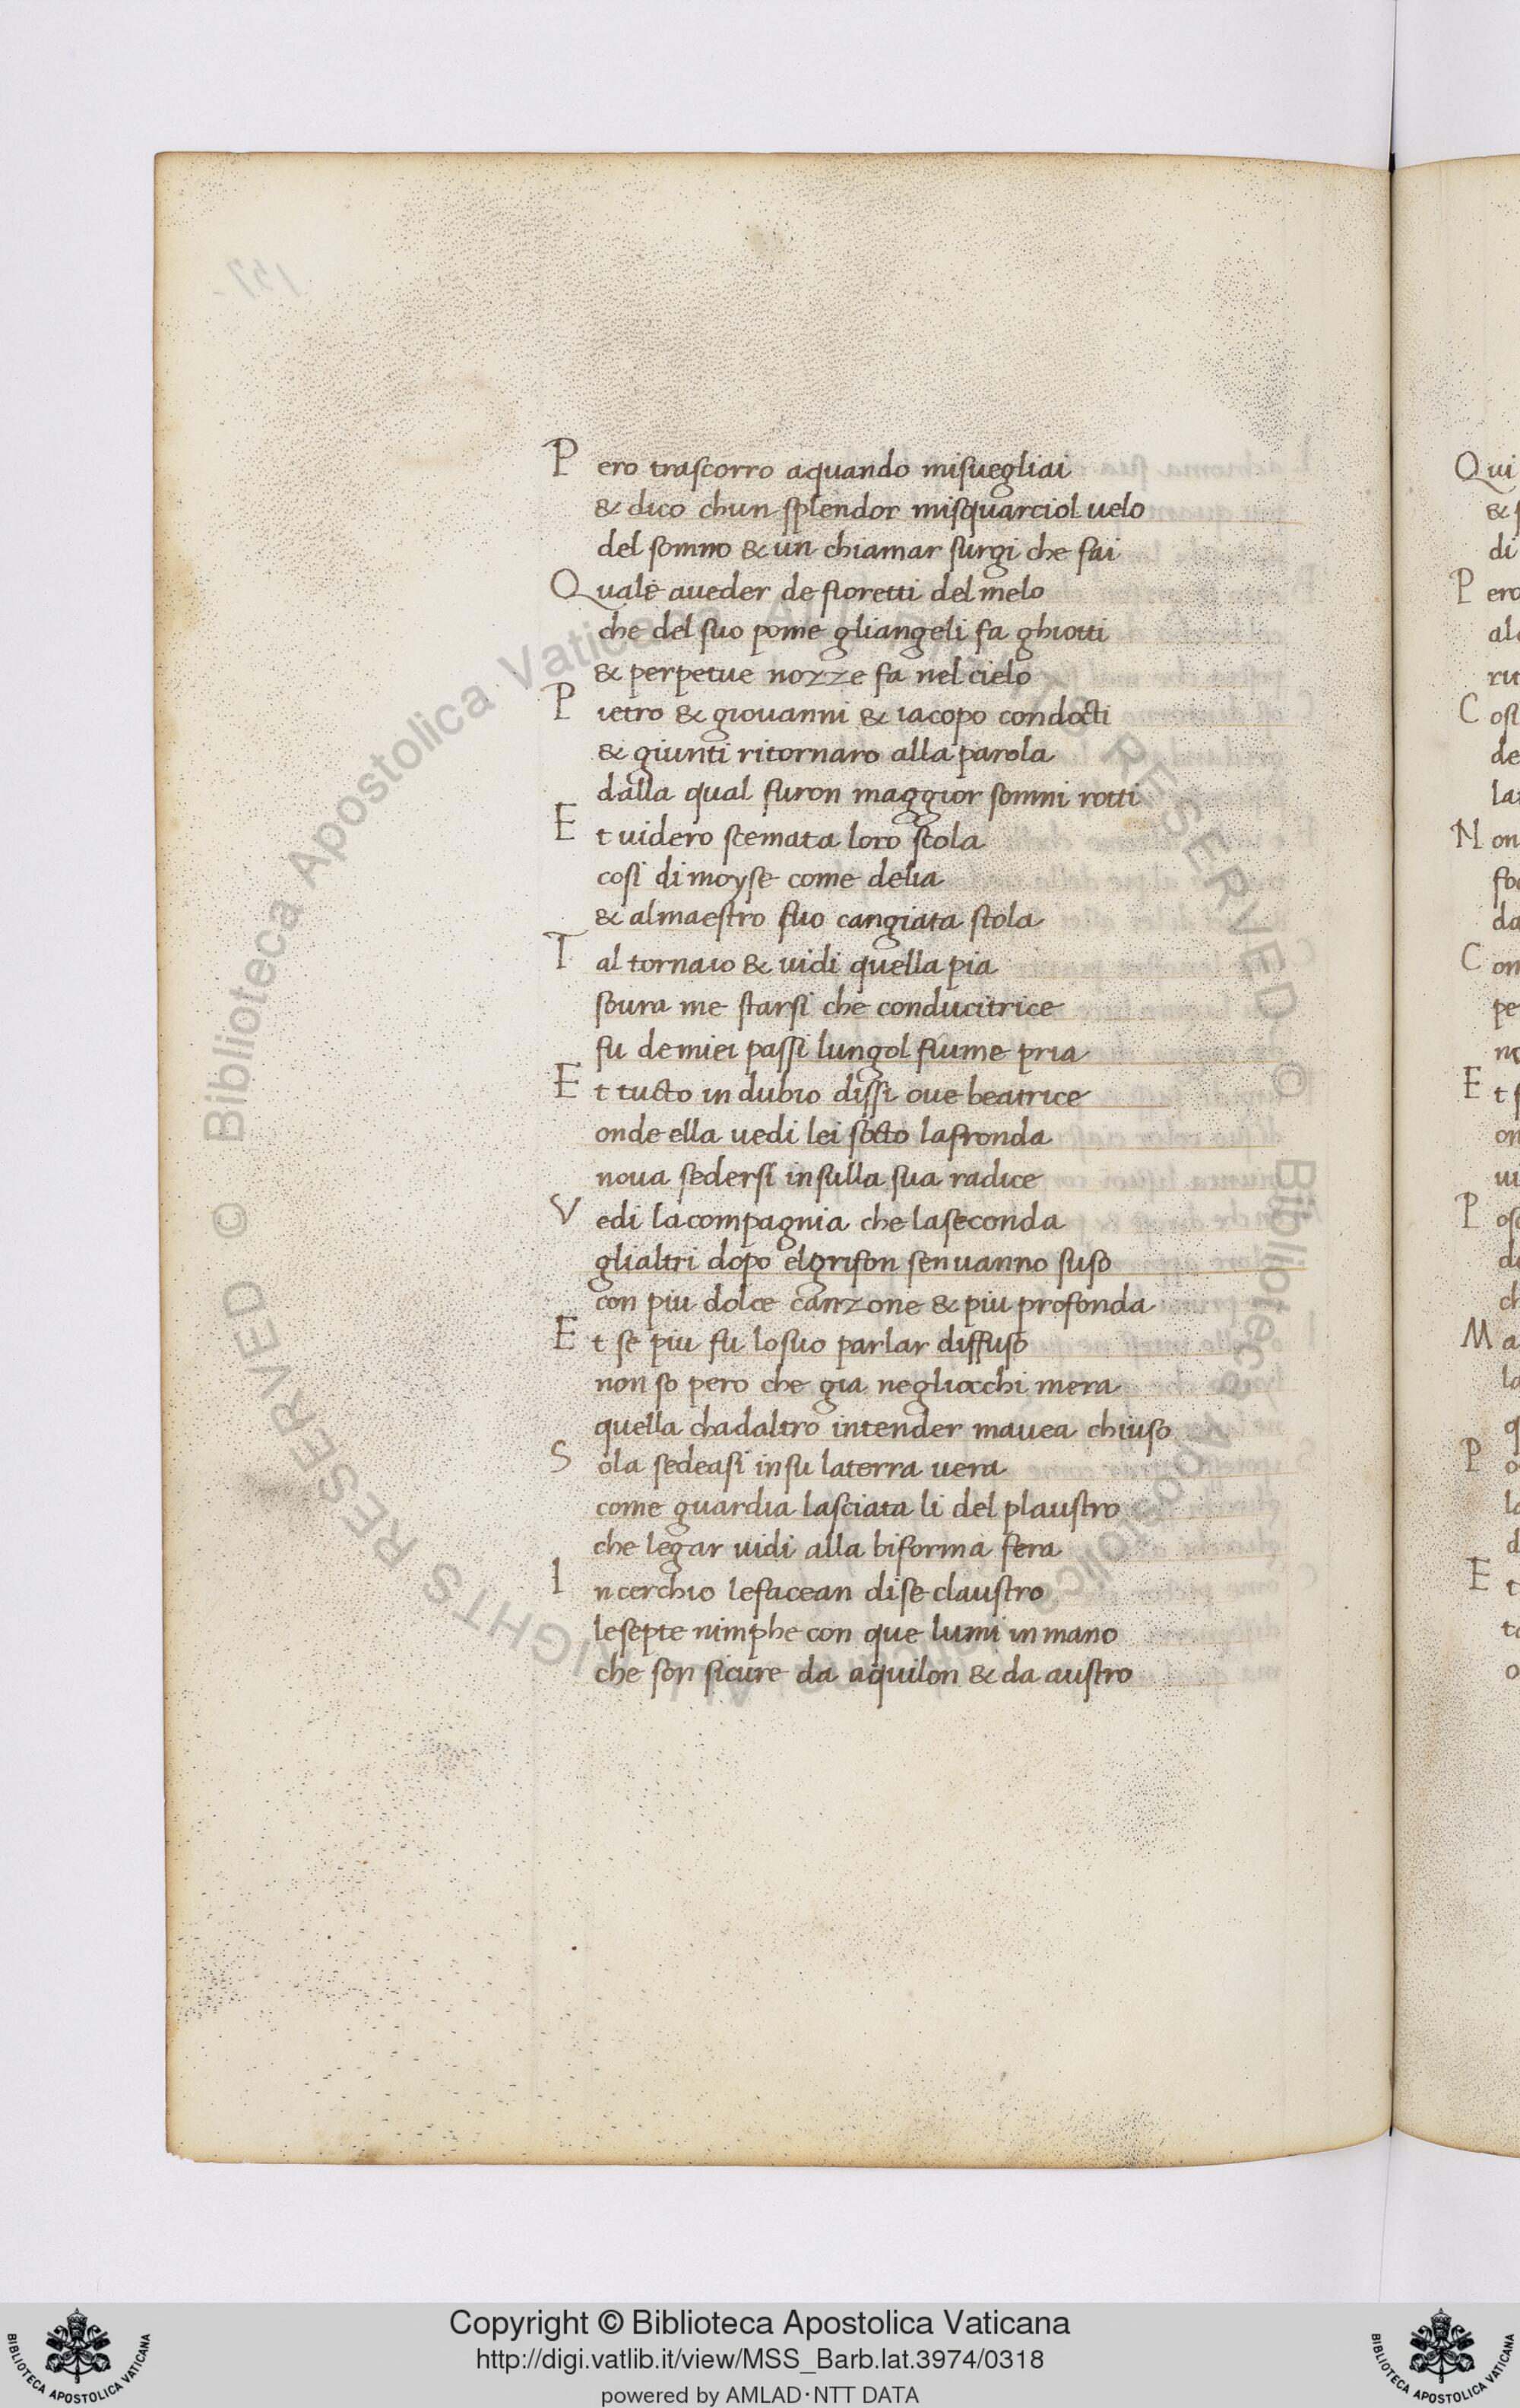 Pero trascorro aquando misuegliai
& dico chun splendor misquarciol uelo
del somno & un chiamar surgi che fai
Quale aueder de fioretti del melo
che del suo pome gliangeli fa ghiotti
& perpetue nozze fa nel cielo
Pietro & giouanni & iacopo condocti
& giunti ritornaro alla parola
dalla qual furon maggior somni rotti
Et uidero scemata loro scola
cosi di moyse come delia
& almaestro suo cangiata stola
Tal tornaio & uidi quella pia
soura me starsi che conducitrice
fu de miei passi lungol fiume pria
Et tucto in dubio dissi oue beatrice
onde ella uedi lei socto lafronda
noua sedersi insulla sua radice
Vedi lacompagnia che laseconda
glialtri dopo elgrifon senuanno suso
con piu dolce canzone & piu profonda
Et se piu fu losuo parlar diffuso
non so pero che gia negliocchi mera
quella chadaltro intender mauea chiuso
Sola sedeasi insu laterra uera
come guardia lasciata li del plaustro
che legar uidi alla biforma fera
In cerchio lefacean dise claustro
lesepte nimphe con que lumi in mano
che son sicure da aquilon & da austro
Qui
& s
di
Pero
ru
Cosi
de
Non
da
Con
pe
Et s
on
ui
Pos
de
ch
Ma
la
q
P
la
d
Et
o
© Biblioteca Apostolica Vaticana ALL RIGHTS RESERVED © Biblioteca Apostolica Vaticana ALL RIGHTS RESERVED
Copyright © Biblioteca Apostolica Vaticana
http://digi.vatlib.it/view/MSS_Barb.lat.3974/0318
powered by AMLAD·NTT DATA
BIBLIOTECA APOSTOLICA VATICANA
BIBLIOTECA APOSTOLICA VATICANA